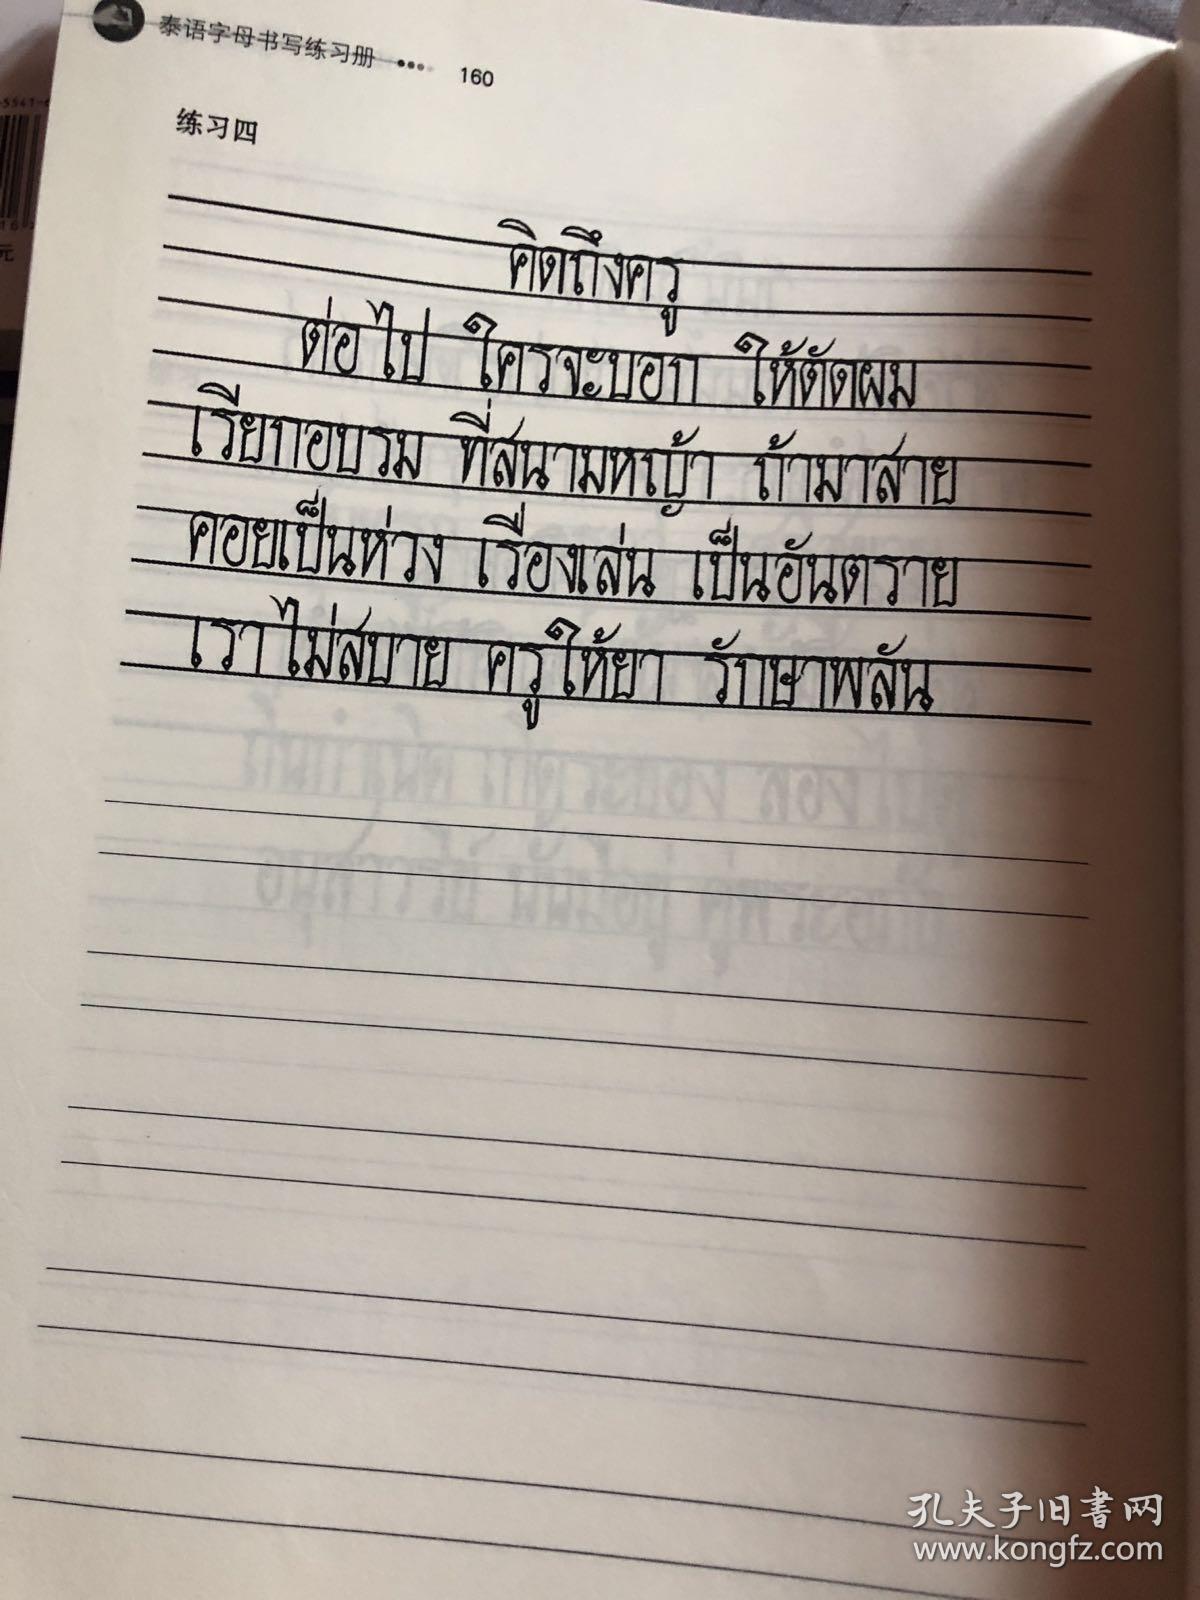 泰语字母书写练习册 160
练习四
คิดถึงครู
ต่อไป ใครจะบอก ให้ตัดผม
เรียกอบรม ที่สนามหญ้า ถ้ามาสาย
คอยเป็นห่วง เรื่องเล่น เป็นอันตราย
เราไม่สบาย ครูให้ยา รักษาพลัน
孔夫子旧書网
www.kongfz.com